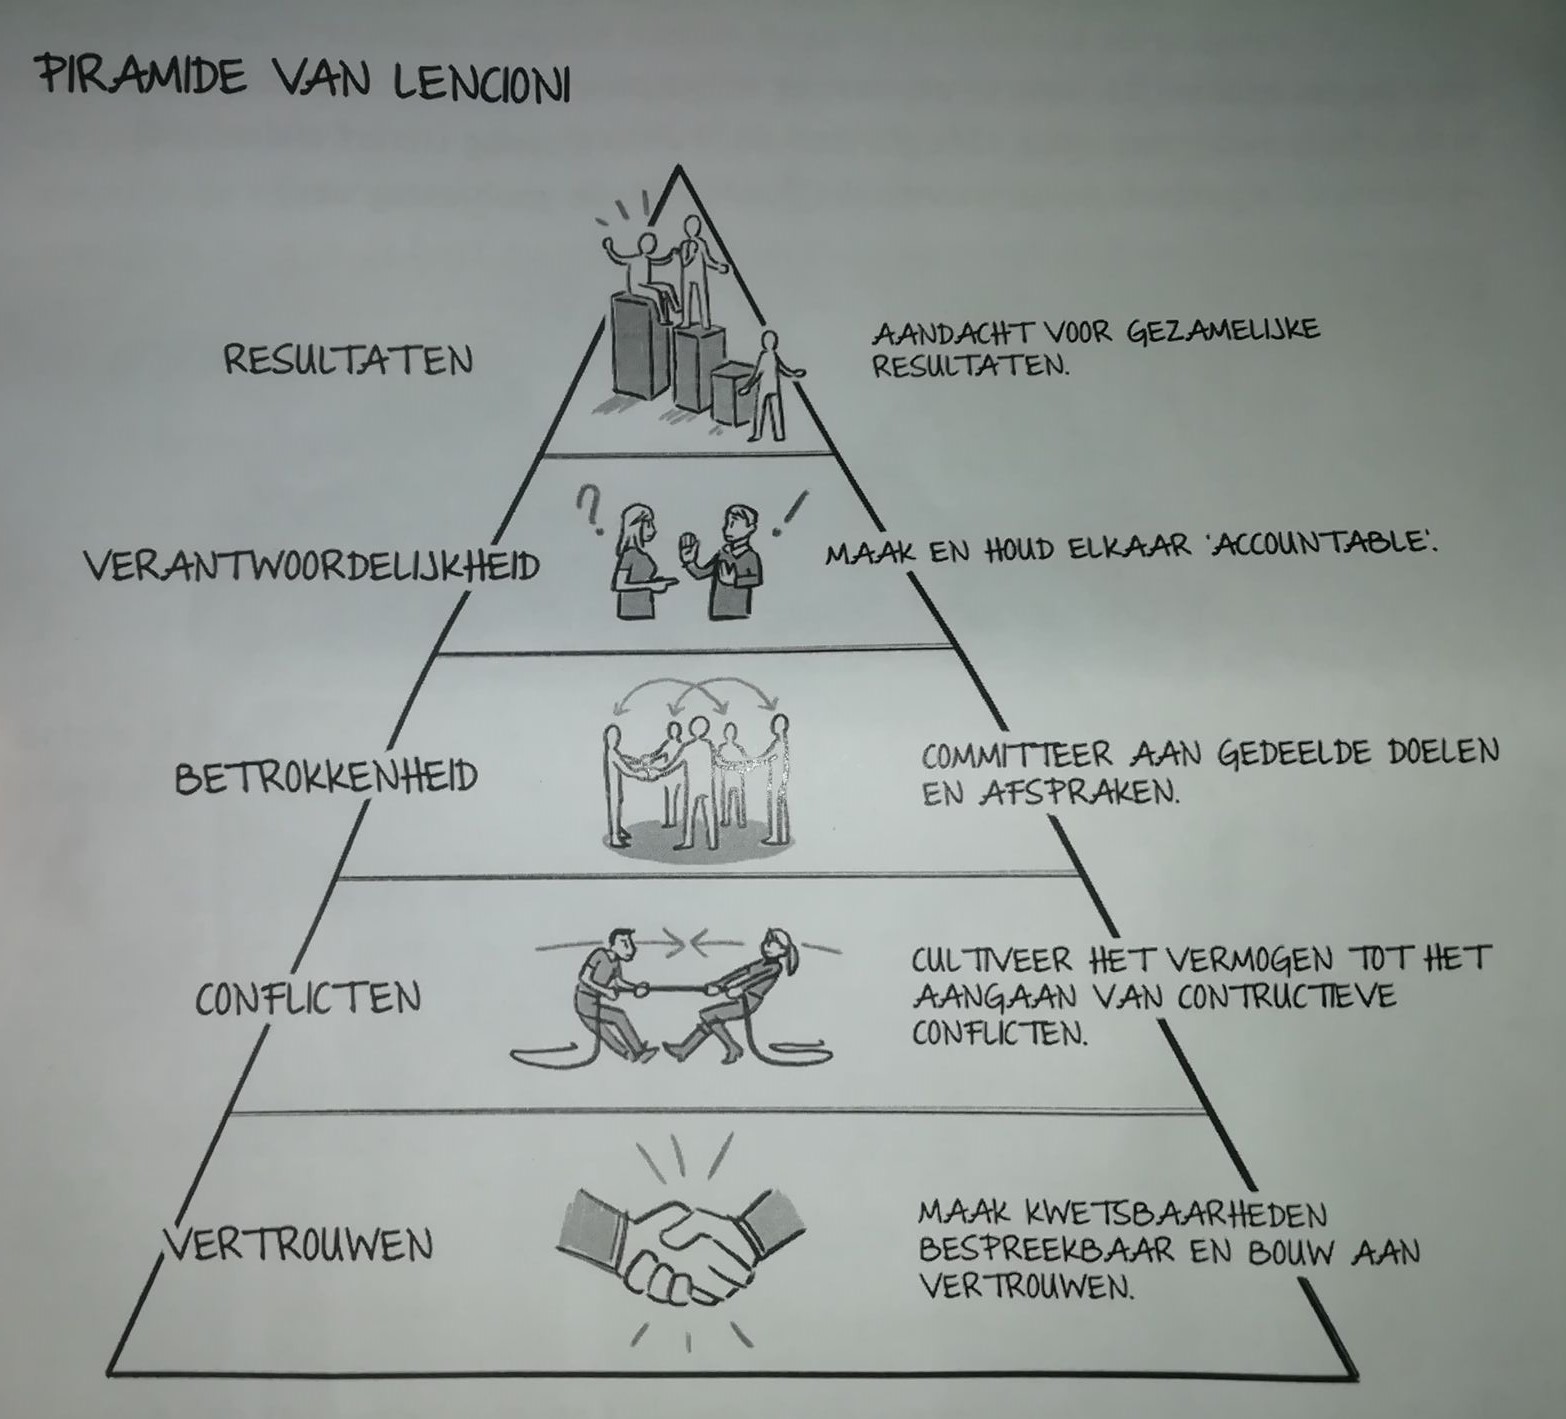 PIRAMIDE VAN LENCIONI
RESULTATEN
AANDACHT VOOR GEZAMELIJKE
RESULTATEN.
?
!
VERANTWOORDELIJKHEID
MAAK EN HOUD ELKAAR 'ACCOUNTABLE'.
BETROKKENHEID
COMMITTEER AAN GEDEELDE DOELEN
EN AFSPRAKEN.
CONFLICTEN
CULTIVEER HET VERMOGEN TOT HET
AANGAAN VAN CONTRUCTIEVE
CONFLICTEN.
VERTROUWEN
MAAK KWETSBAARHEDEN
BESPREEKBAAR EN BOUW AAN
VERTROUWEN.